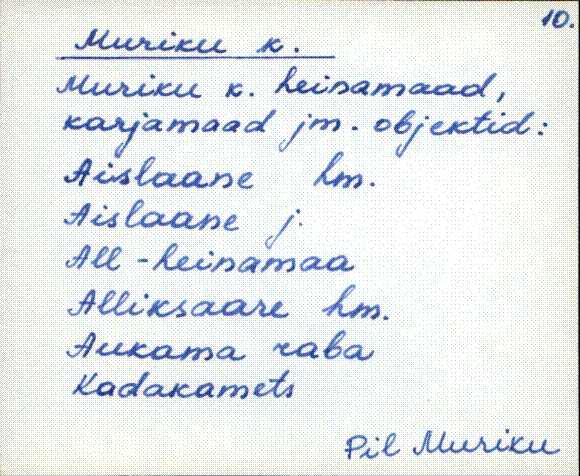 10.
Muriku k.
Muriku k. heinamaad,
karjamaad jm. objektid:
Aislaane hm.
Aislaane j.
All-heinamaa
Alliksaare hm.
Aukama raba
Kadakamets
Pil Muriku